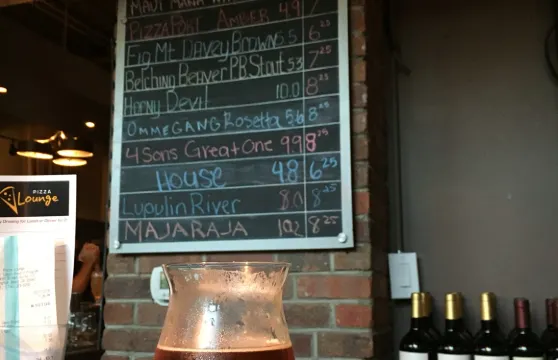 PIZZA PORT AMBER 4.9 7
Fig Mt. Davey Brown 5.5 6.25
Belching Beaver P.B. Stout 5.3 7.25
Horny Devil 10.0 8.25
OMMEGANG Rosetta 5.6 8.25
4 Sons Great One 9.9 8.25
House 4.8 6.25
Lupulin River 8.0 8.25
MAJARAJA 10.2 8.25
PIZZA
Lounge